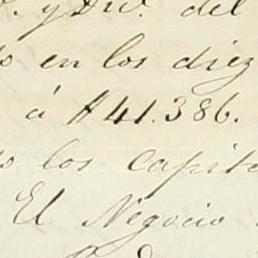 y Dw. del
en los diez
á $41.386.
los capit
El Negocio